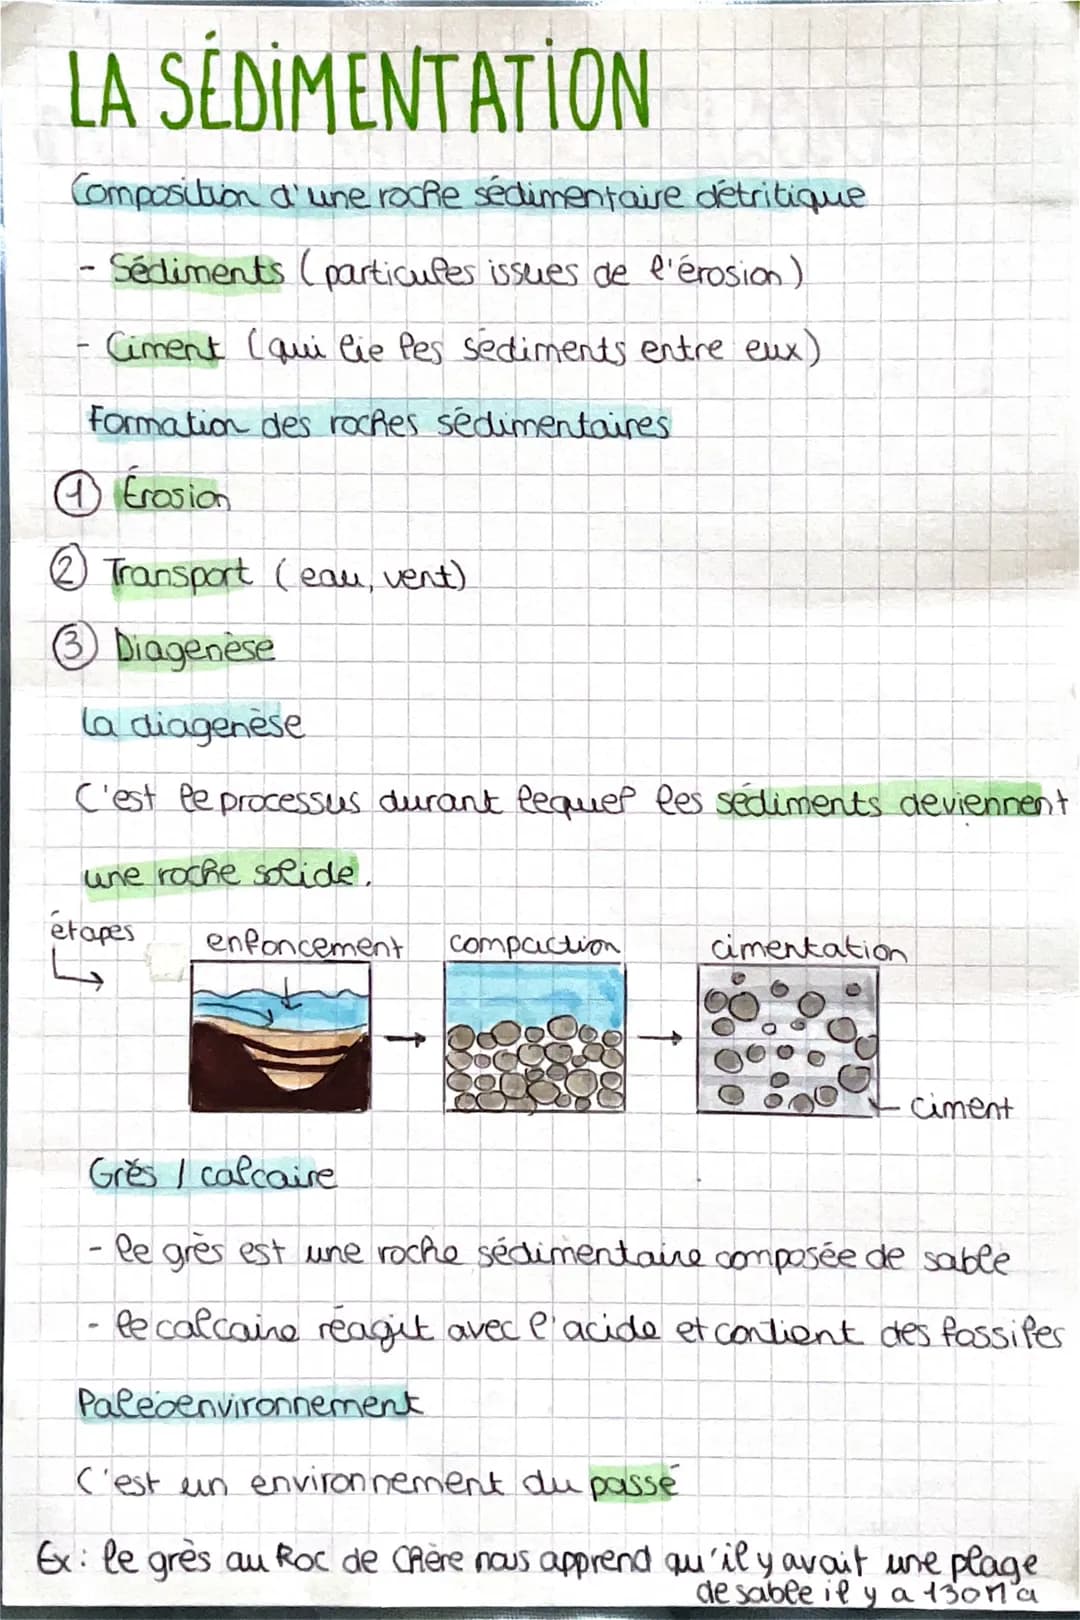 LA SÉDIMENTATION
Composition d'une roche sédimentaire détritique
- Sédiments (particules issues de l'érosion)
- Ciment (qui lie les sédiments entre eux)
Formation des roches sédimentaires
① Érosion
② Transport (eau, vent)
③ Diagenèse
La diagenèse
C'est le processus durant lequel les sédiments deviennent
une roche solide.
étapes
enfoncement compaction cimentation
ciment
Grès / calcaire
- le grès est une roche sédimentaire composée de sable
- le calcaire réagit avec l'acide et contient des fossiles
Paléoenvironnement
C'est un environnement du passé
Ex: le grès au Roc de Chère nous apprend qu'il y avait une plage
de sable il y a 130 Ma